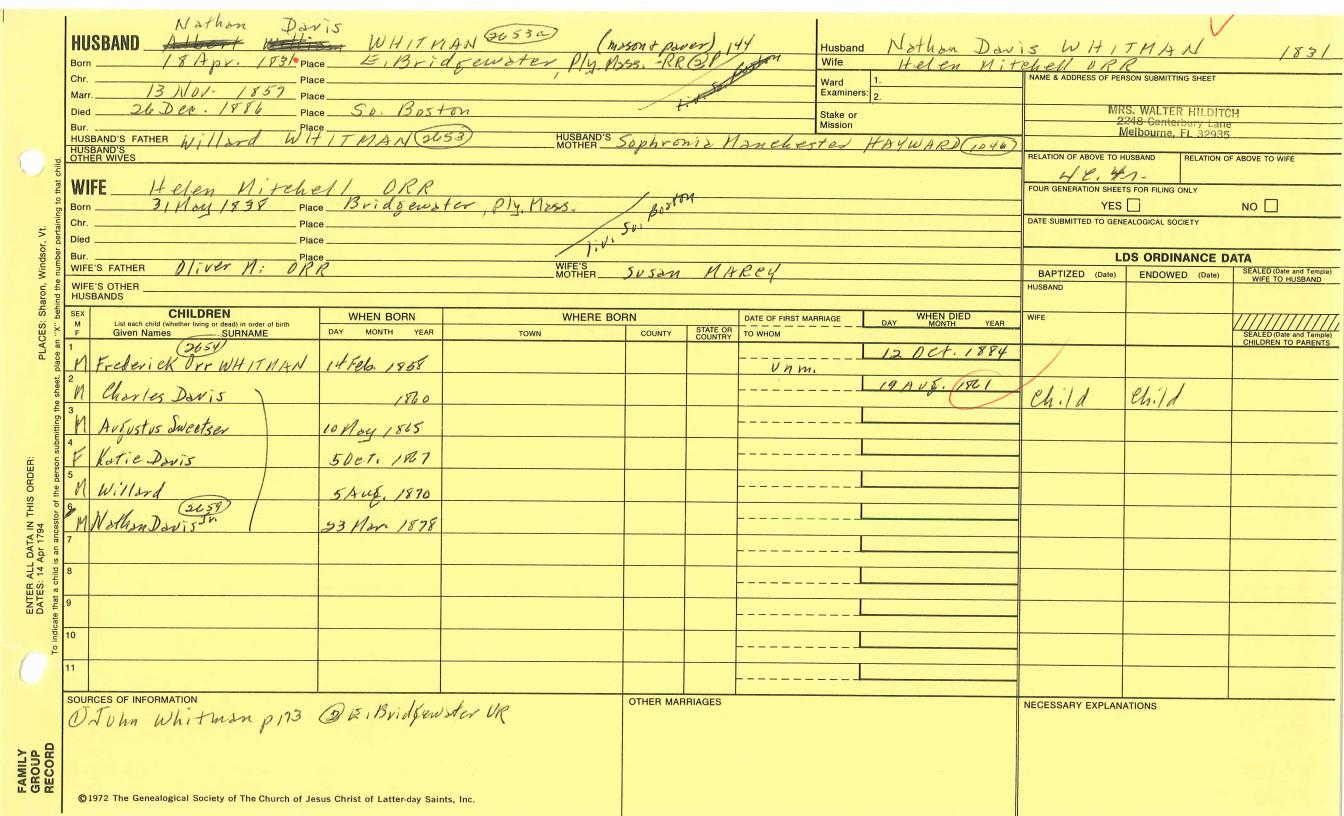 Nathan Davis
HUSBAND Albert William WHITMAN 2653a (mason & paver) 144
Born 18 Apr. 1831 Place E. Bridgewater, Ply. Mass. -RR ② P
liv. So. Boston
Chr. Place
Marr. 13 Nov. 1857 Place
Died 26 Dec. 1886 Place So. Boston
Bur. Place
HUSBAND'S FATHER Willard WHITMAN 2653 HUSBAND'S MOTHER Sophronia Manchester HAYWARD 1046
HUSBAND'S OTHER WIVES
Husband Nathan Davis WHITMAN 1831
Wife Helen Mitchell ORR
Ward Examiners: 1.
2.
Stake or Mission
NAME & ADDRESS OF PERSON SUBMITTING SHEET
MRS. WALTER HILDITCH
2248 Canterbury Lane
Melbourne, FL 32935
RELATION OF ABOVE TO HUSBAND RELATION OF ABOVE TO WIFE
FOUR GENERATION SHEETS FOR FILING ONLY
YES NO
DATE SUBMITTED TO GENEALOGICAL SOCIETY
WIFE Helen Mitchell ORR
Born 31 May 1838 Place Bridgewater, Ply. Mass.
liv. So. Boston
Chr. Place
Died Place
Bur. Place
WIFE'S FATHER Oliver M. ORR WIFE'S MOTHER Susan MARCY
WIFE'S OTHER HUSBANDS
LDS ORDINANCE DATA
BAPTIZED (Date) ENDOWED (Date) SEALED (Date and Temple) WIFE TO HUSBAND
HUSBAND
WIFE
SEALED (Date and Temple) CHILDREN TO PARENTS
SEX M F CHILDREN WHEN BORN WHERE BORN DATE OF FIRST MARRIAGE WHEN DIED
List each child (whether living or dead) in order of birth
Given Names SURNAME DAY MONTH YEAR TOWN COUNTY STATE OR COUNTRY TO WHOM DAY MONTH YEAR
1 M Frederick Orr WHITMAN 2654 14 Feb. 1858 unm. 12 Oct. 1884
2 M Charles Davis 1860 19 Aug. 1861 Child Child
3 M Augustus Sweetser 10 May 1865
4 F Katie Davis 5 Oct. 1867
5 M Willard 5 Aug. 1870
6 M Nathan Davis Jr. 2659 23 Mar. 1878
7
8
9
10
11
SOURCES OF INFORMATION
① John Whitman p173 ② E. Bridgewater VR
OTHER MARRIAGES
NECESSARY EXPLANATIONS
©1972 The Genealogical Society of The Church of Jesus Christ of Latter-day Saints, Inc.
FAMILY GROUP RECORD
ENTER ALL DATA IN THIS ORDER:
DATES: 14 Apr 1794
PLACES: Sharon, Windsor, Vt.
To indicate that a child is an ancestor of the person submitting the sheet, place an "X" behind the number pertaining to that child.